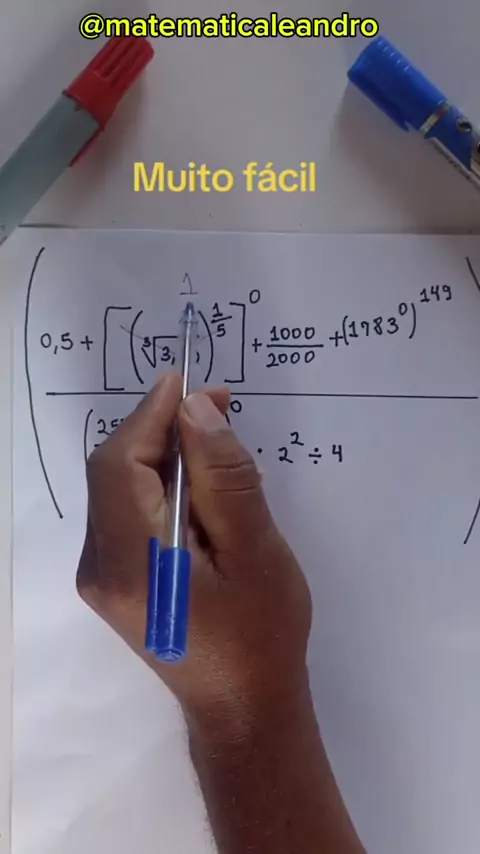 @matematicaleandro
Muito fácil
1
0,5 + [(∛3, )^(1/5)]^0 + 1000/2000 + (1783^0)^149
0 · 2^2 ÷ 4